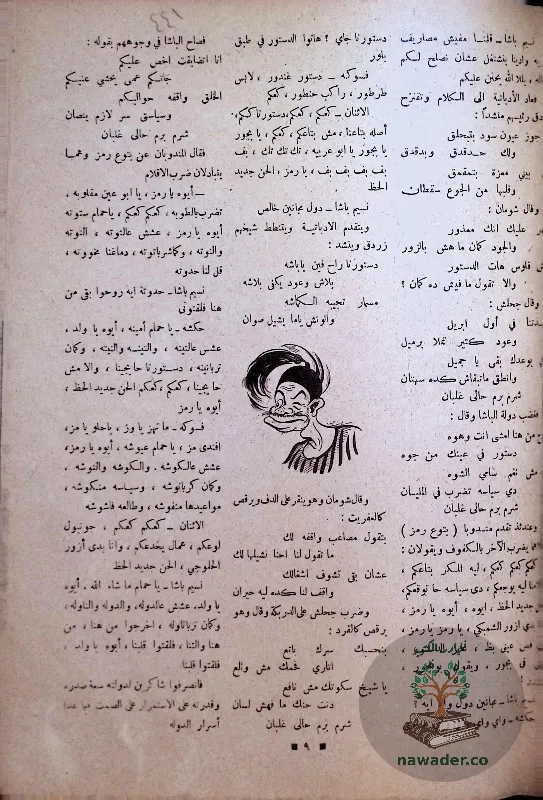 ٤٤١
نسيم باشا ـ قلنــا مفيش مصاريف
يه وادينا بنشتغل عشان نصلح لسكم
له، يللا الله يحنن عليكم
فعاد الأدباتية الى السكلام وتقنزح
دق رئيسهم منشداً :
جوز عيون سود بتبحلق
ولك حــدقـدق وبدقدق
بيى معزة بتمقمق
وقلبها من الجوع سقطان
وقال شومان :
ر عليك انك معذور
والجود كمان ما هش بالزور
ش فلوس هات الدستور
والا تقول ما فيش ده كمان ؟
وقال جحلش :
عدتنا في أول ابريل
وعود كتير تملا برميل
ي بوعدك بقى يا جميل
وانطق ماتبقاش كده سهتان
شرم برم حالى غلبان
فغضب دولة الباشا وقال :
ح من هنا امشى انت وهوه
دستور في عينك من جوه
مش نقم سامي الشوه
دي سياسه تضرب في المليان
شرم برم حالى غلبان
وعندئذ تقدم مندوبا ( بتوع رمز )
يضرب الآخر بالكفوف ويقولان :
كمكم كمكم، ليه السكر بتاعكم ،
ليه يوجعكم، دى سياسه حا توقعكم،
جديد الحظ . ايوه ، أيوه يا رمز ،
دى ازور الشمبكي ، يا رمز يا رمز،
في بجور ، ويقول بوفور ،
نسيم باشا ـ مجانين دول والا ايه ؟
حكشه ـ واى واى
دستور نا جاي ؟ هاتوا الدستور في طبق
بلور
فسوكه ـ دستور غندور ، لابس
طرطور ، راكب حنطور ، كمكم
الاثنان ـ كمكم ، كمكم، دستورنا كمكم،
أصله بتاعنا ، مش بتاعكم ، كمكم ، يا بجور
يا بجور يا ابو عربيه ، تك تك تك ، بف
بف بف بف بف ، يا رمز ، الحن جديد
الحظ
نسيم باشا ـ دول مجانين خالص
ويتقدم الادباتيــة ويتقطط شيخهم
زردق وينشد :
دستورنا راح فين ياباشه
بلاش وعود يكفى بلاشه
مسمار نجيبه الكماشه
والونش ياما يشيل صوان
وقال شومان وهو ينقر على الدف ويرقص
كالعفريت :
بتقول مصاعب واقفه لك
ما تقول لنا احنا نشيلها لك
عشان بقى تشوف اشغالك
واقف لنا كده ليه حيران
وضرب جحلش على الدربكة وقال وهو
يرقص كالقرد :
بنحسبك سرك باتع
اتاري فحمك مش والع
يا شيخ سكوتك مش نافع
دنت حنك ما فهش لسان
شرم برم حالى غلبان
فصاح الباشا في وجوههم بقوله :
انا اتضايقت اخص عليكم
جاتسكم عمى يخشي عنيكم
الخلق واقفه حواليسكم
وسياستى سر لازم ينصان
شرم برم حالى غلبان
فقال المندوبان عن بتوع رمز وهمــا
يتبادلان ضرب الاقلام
ـ أيوه يا رمز ، يا ابو عين مقلوبه ،
تضرب بالطوبه ، كمكم كمكم ، ياحمام ستوته
أيوه يا رمز ، عشش عالتوته ، التوته
والنوته ، وكماشرباتوته ، دماغنا مخووته ،
قل لنا حدوته
نسيم باشا ـ حدوتة ايه روحوا بقى من
هنا فلقتونى
حكشه ـ يا حمام أمينه ، أيوه يا ولد ،
عشس عالتينه ، والتينه والتينه ، وكمان
تربانينه ، دستورنا حا يجينا ، والا مش
حا يجينا ، كمكم ، كمكم الحن جديد الحظ ،
أيوه يا رمز
فسوكه ـ ما تهز يا وز ، ياحلو يا مز،
افندى مز ، يا حمام عيوشه ، أيوه يا رمز،
عشش عالكوشه ، والكوشه والنوشه ،
وكمان كربانوشه ، وسياسه منكوشه ،
مواعيدها منفوشه ، وطالعه فاشوشه
الاثنان ـ كمكم كمكم ، جونبول
لوعكم ، عمال يخدعكم ، وانا بدى أزور
الحلوجي ، الحن جديد الحظ
نسيم باشا ـ يا حمام ما شاء الله . أيوه
يا ولد، عشش عالدوله، والدوله والناوله،
وكمان ترباناوله ، اخرجوا من هنا ، من
هنا والتنا ، فلقتوا قلبنا ، أيوه يا ولد ،
فلقتوا قلبنا
فانصرفوا شاكرين لدولته سعة صدره
وقدرته على الاستمرار على الصمت فيما عدا
أسرار الدوله
٩
نوادر الكتب
nawader.co